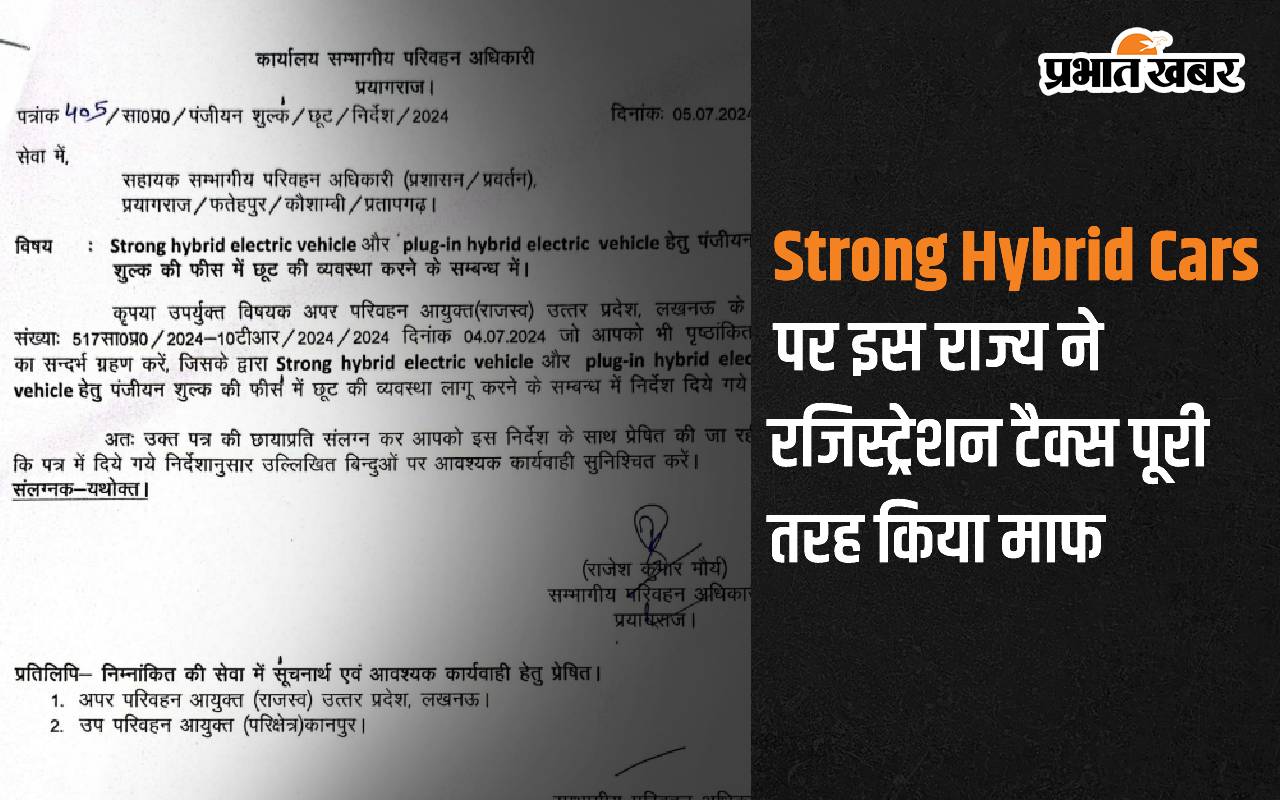 कार्यालय सम्भागीय परिवहन अधिकारी
प्रयागराज।
पत्रांक 405/सा0प्र0/पंजीयन शुल्क/छूट/निर्देश/2024 दिनांकः 05.07.2024
सेवा में,
सहायक सम्भागीय परिवहन अधिकारी (प्रशासन/प्रवर्तन),
प्रयागराज/फतेहपुर/कौशाम्बी/प्रतापगढ़।
विषय : Strong hybrid electric vehicle और plug-in hybrid electric vehicle हेतु पंजीयन
शुल्क की फीस में छूट की व्यवस्था करने के सम्बन्ध में।
कृपया उपर्युक्त विषयक अपर परिवहन आयुक्त(राजस्व) उत्तर प्रदेश, लखनऊ के
संख्याः 517सा0प्र0/2024–10टीआर/2024/2024 दिनांक 04.07.2024 जो आपको भी पृष्ठांकित
का सन्दर्भ ग्रहण करें, जिसके द्वारा Strong hybrid electric vehicle और plug-in hybrid elec
vehicle हेतु पंजीयन शुल्क की फीस में छूट की व्यवस्था लागू करने के सम्बन्ध में निर्देश दिये गये
अतः उक्त पत्र की छायाप्रति संलग्न कर आपको इस निर्देश के साथ प्रेषित की जा रही
कि पत्र में दिये गये निर्देशानुसार उल्लिखित बिन्दुओं पर आवश्यक कार्यवाही सुनिश्चित करें।
संलग्नक–यथोक्त।
(राजेश कुमार मौर्य)
सम्भागीय परिवहन अधिकारी
प्रयागराज।
प्रतिलिपि– निम्नांकित की सेवा में सूचनार्थ एवं आवश्यक कार्यवाही हेतु प्रेषित।
1. अपर परिवहन आयुक्त (राजस्व) उत्तर प्रदेश, लखनऊ।
2. उप परिवहन आयुक्त (परिक्षेत्र)कानपुर।
प्रभात खबर
Strong Hybrid Cars
पर इस राज्य ने
रजिस्ट्रेशन टैक्स पूरी
तरह किया माफ